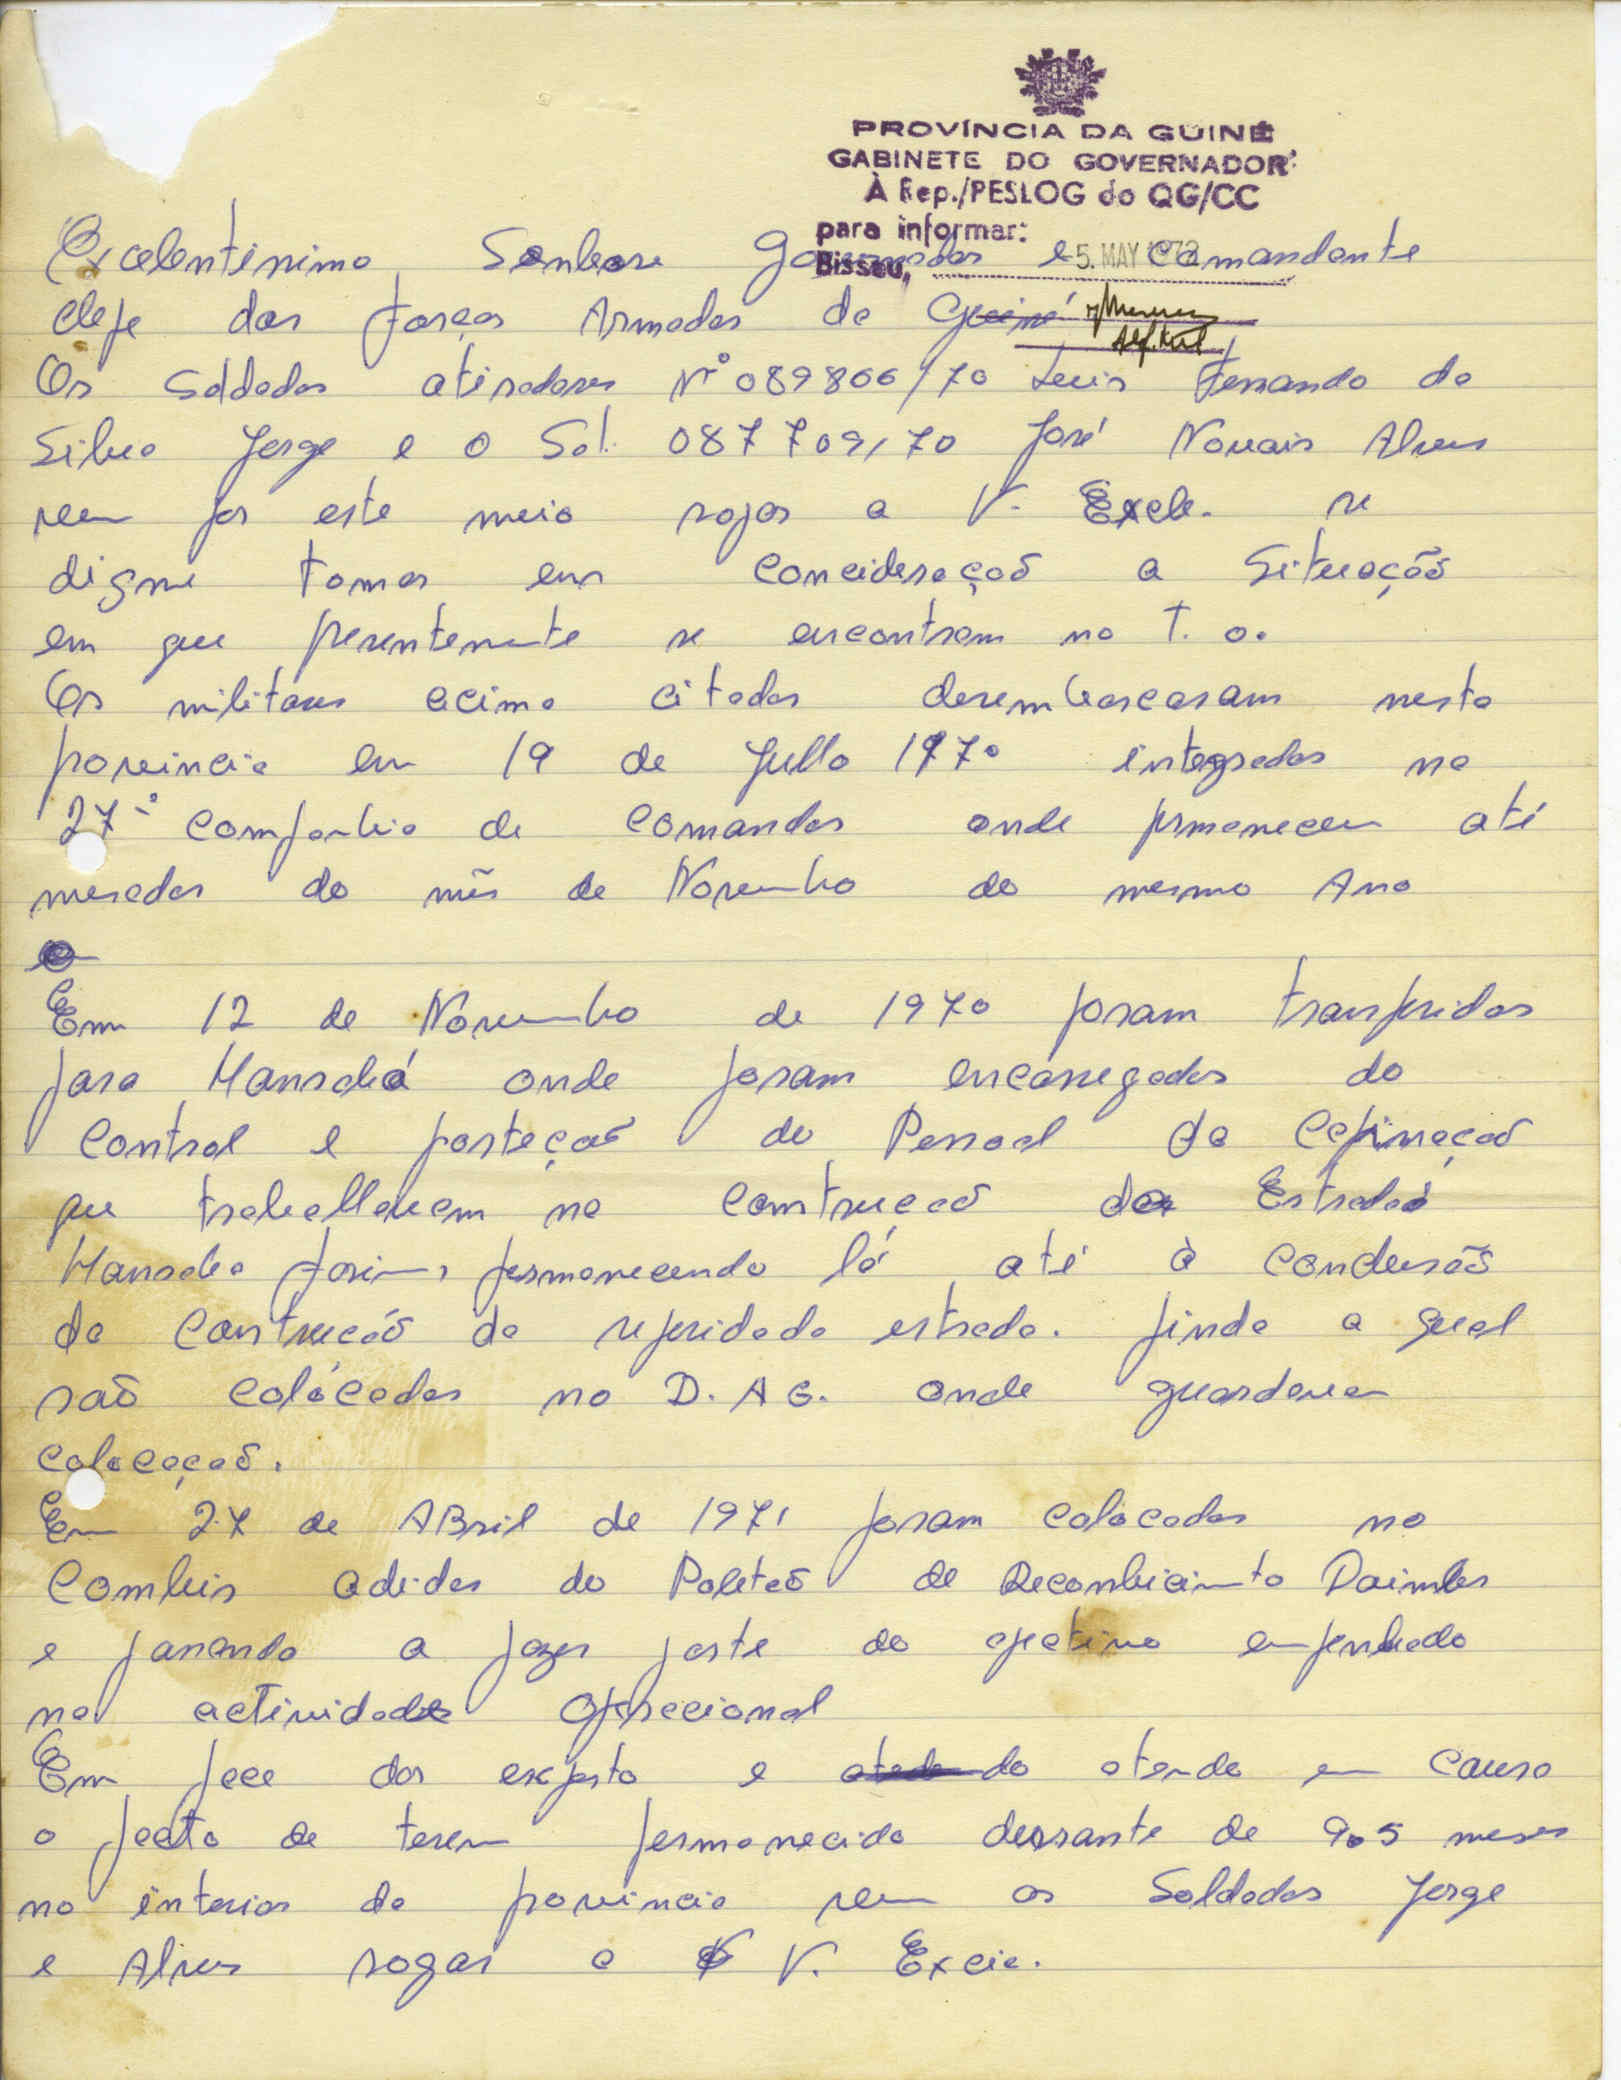 PROVÍNCIA DA GUINÉ
GABINETE DO GOVERNADOR
À Rep./PESLOG do QG/CC
para informar:
Bissau, 5. MAY 1972
Excelentenimo Senhore Governador e Comandante
Chefe das forças Armadas da Guiné
Alf. Mil
Os Soldados atiradores Nº 089806/70 Luis Fernando da
Silva Jorge e o Sol. 087709/70 José Novais Alves
vem por este meio rogar a V. Excle. se
digne tomar em Concideraçaõ a Situaçãõ
em que presentemente se encontram no T. O.
Os militares acima citados desembarcaram nesta
porvincia em 19 de Julho 1970 integrados na
27ª Companhia de Comandos onde prmanecem até
meados do mês de Novembro do mesmo Ano
Em 12 de Novembro de 1970 foram transfridos
para Mansabá onde foram encarregados do
Control e porteçaõ do Pessoal da Capinaçaõ
que trabalhavam na Contruçaõ da Estrada
Mansaba farim, permanecendo lá até à Conclusãõ
da Contruçãõ da referidada estrada. finda a qual
saõ colócados no D. A G. onde guardavam
colocaçaõ.
Em 27 de ABril de 1971 foram colocados no
Combis adidos do Poletaõ de Reconhicimento Daimler
e passando a fazer parte do efectivo empenhado
na actividade Opraccional
Em face dos exposto e do atendo em causa
o facto de terem permanecido durante de 905 meses
no interior da provincia vem os Soldados Jorge
e Alves rogar a V. Excia.